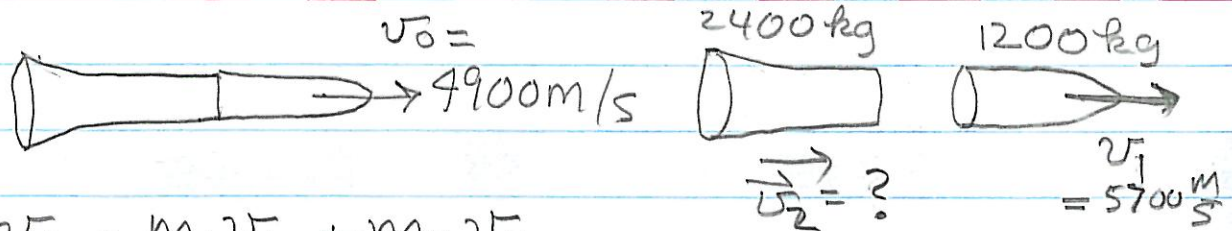 v₀ =
4900 m/s
2400 kg
1200 kg
v₂ = ?
v₁
= 5700 m/s